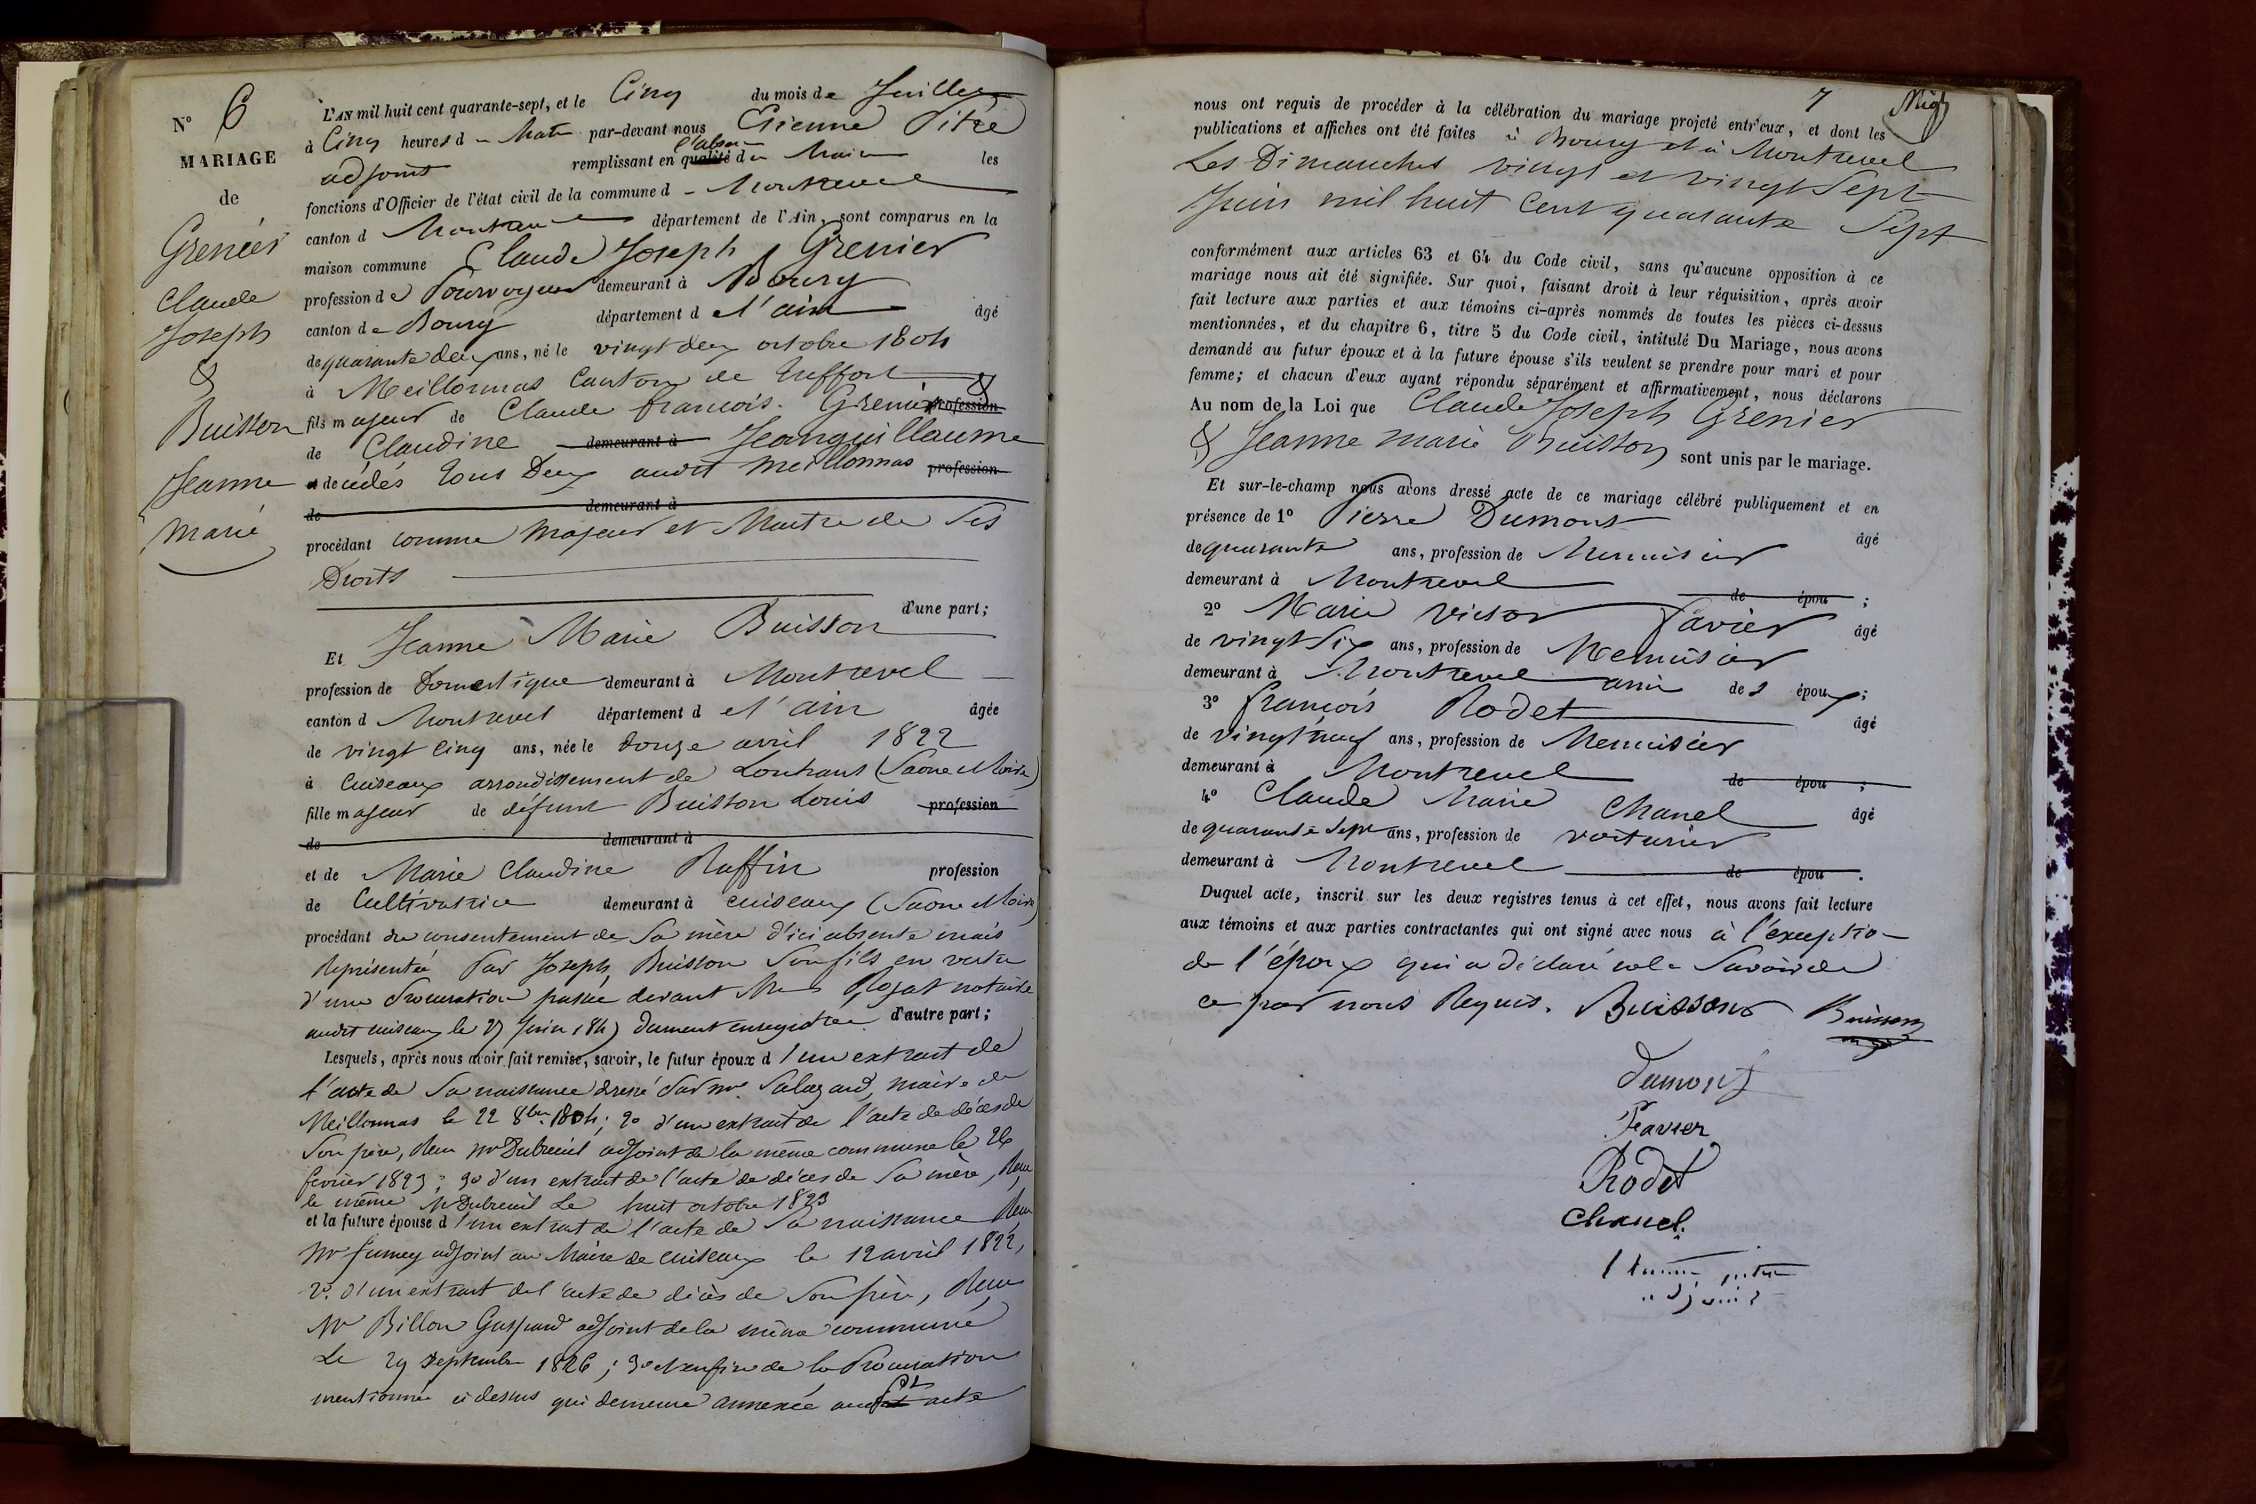 N° 6
MARIAGE
de
Grenier
Claude
Joseph
&
Buisson
Jeanne
Marie
L'AN mil huit cent quarante-sept, et le Cinq du mois de Juillet
à Cinq heures d u Matin par-devant nous Etienne Pitre
adjoint remplissant en l'absence qualité du Maire les
fonctions d'Officier de l'état civil de la commune d e Montrevel
canton d Montrevel département de l'Ain, sont comparus en la
maison commune Claude Joseph Grenier
profession de Pourvoyeur demeurant à Bourg
canton de Bourg département d e l'ain âgé
de quarante deux ans, né le vingt deux octobre 1804
à Meillonnas Canton de Treffort
fils majeur de Claude francois Grenier & profession
de Claudine demeurant à Jeanguillaume
et décédés tous Deux audit Meillonnas profession
de demeurant à
procédant comme Majeur et Maitre de Ses
Droits
d'une part;
Et Jeanne Marie Buisson
profession de Domestique demeurant à Montrevel
canton d Montrevel département d e l'ain âgée
de vingt Cinq ans, née le douze avril 1822
à Cuiseaux arrondissement de Louhans (Saone & Loire)
fille majeur de défunt Buisson Louis profession
de demeurant à
et de Marie Claudine Ruffin profession
de Cultivatrice demeurant à cuiseaux (Saone & Loire)
procédant du consentement de Sa mère d'ici absente mais
Représentée Par Joseph Buisson Son fils en vertu
d'une Procuration passée devant Me Rogat notaire
audit cuiseaux le 27 Juin 1847 dument enregistrée d'autre part;
Lesquels, après nous avoir fait remise, savoir, le futur époux d 1° un extrait de
l'acte de Sa naissance dressé Par mr. Salazard, maire de
Meillonnas le 22 8bre 1804; 2° d'un extrait de l'acte de décès de
Son père, Reçu mr Dubreuil adjoint de la même commune le 26
février 1823; 3° d'un extrait de l'acte de décès de Sa mère, Reçu
le même Mr Dubreuil Le huit octobre 1823
et la future épouse d 1° un extrait de l'acte de Sa naissance Reçu
Mr fumey adjoint au Maire de cuiseaux le 12 avril 1822,
2°. d'un extrait de l'acte de décès de Son père, Reçu
Mr Billon Gaspard adjoint de la même commune
Le 29 Septembre 1826; 3° et enfin de la Procuration
mentionnée ci dessus qui demeure annexée au pt acte
7
nous ont requis de procéder à la célébration du mariage projeté entr'eux, et dont les
publications et affiches ont été faites à Bourg et à Montrevel
Les Dimanches vingt et vingt Sept
Juin mil huit Cent quarante Sept
conformément aux articles 63 et 64 du Code civil, sans qu'aucune opposition à ce
mariage nous ait été signifiée. Sur quoi, faisant droit à leur réquisition, après avoir
fait lecture aux parties et aux témoins ci-après nommés de toutes les pièces ci-dessus
mentionnées, et du chapitre 6, titre 5 du Code civil, intitulé Du Mariage, nous avons
demandé au futur époux et à la future épouse s'ils veulent se prendre pour mari et pour
femme; et chacun d'eux ayant répondu séparément et affirmativement, nous déclarons
Au nom de la Loi que Claude Joseph Grenier
& Jeanne marie Buisson sont unis par le mariage.
Et sur-le-champ nous avons dressé acte de ce mariage célébré publiquement et en
présence de 1° Pierre Dumont âgé
de quarante ans, profession de Menuisier
demeurant à Montrevel de épou ;
2° Marie Victor favier âgé
de vingt Six ans, profession de Menuisier
demeurant à Montrevel ami des époux;
3° francois Rodet âgé
de vingt neuf ans, profession de Menuisier
demeurant à Montrevel de épou ;
4° Claude Marie Chanel âgé
de quarante Sept ans, profession de voiturier
demeurant à Montrevel de épou .
Duquel acte, inscrit sur les deux registres tenus à cet effet, nous avons fait lecture
aux témoins et aux parties contractantes qui ont signé avec nous à l'exception
de l'époux qui a déclaré ne le Savoir de
ce par nous Requis. Buisson Buisson
dumont
Favier
Rodet
Chanel
Etienne pitre
adjoint